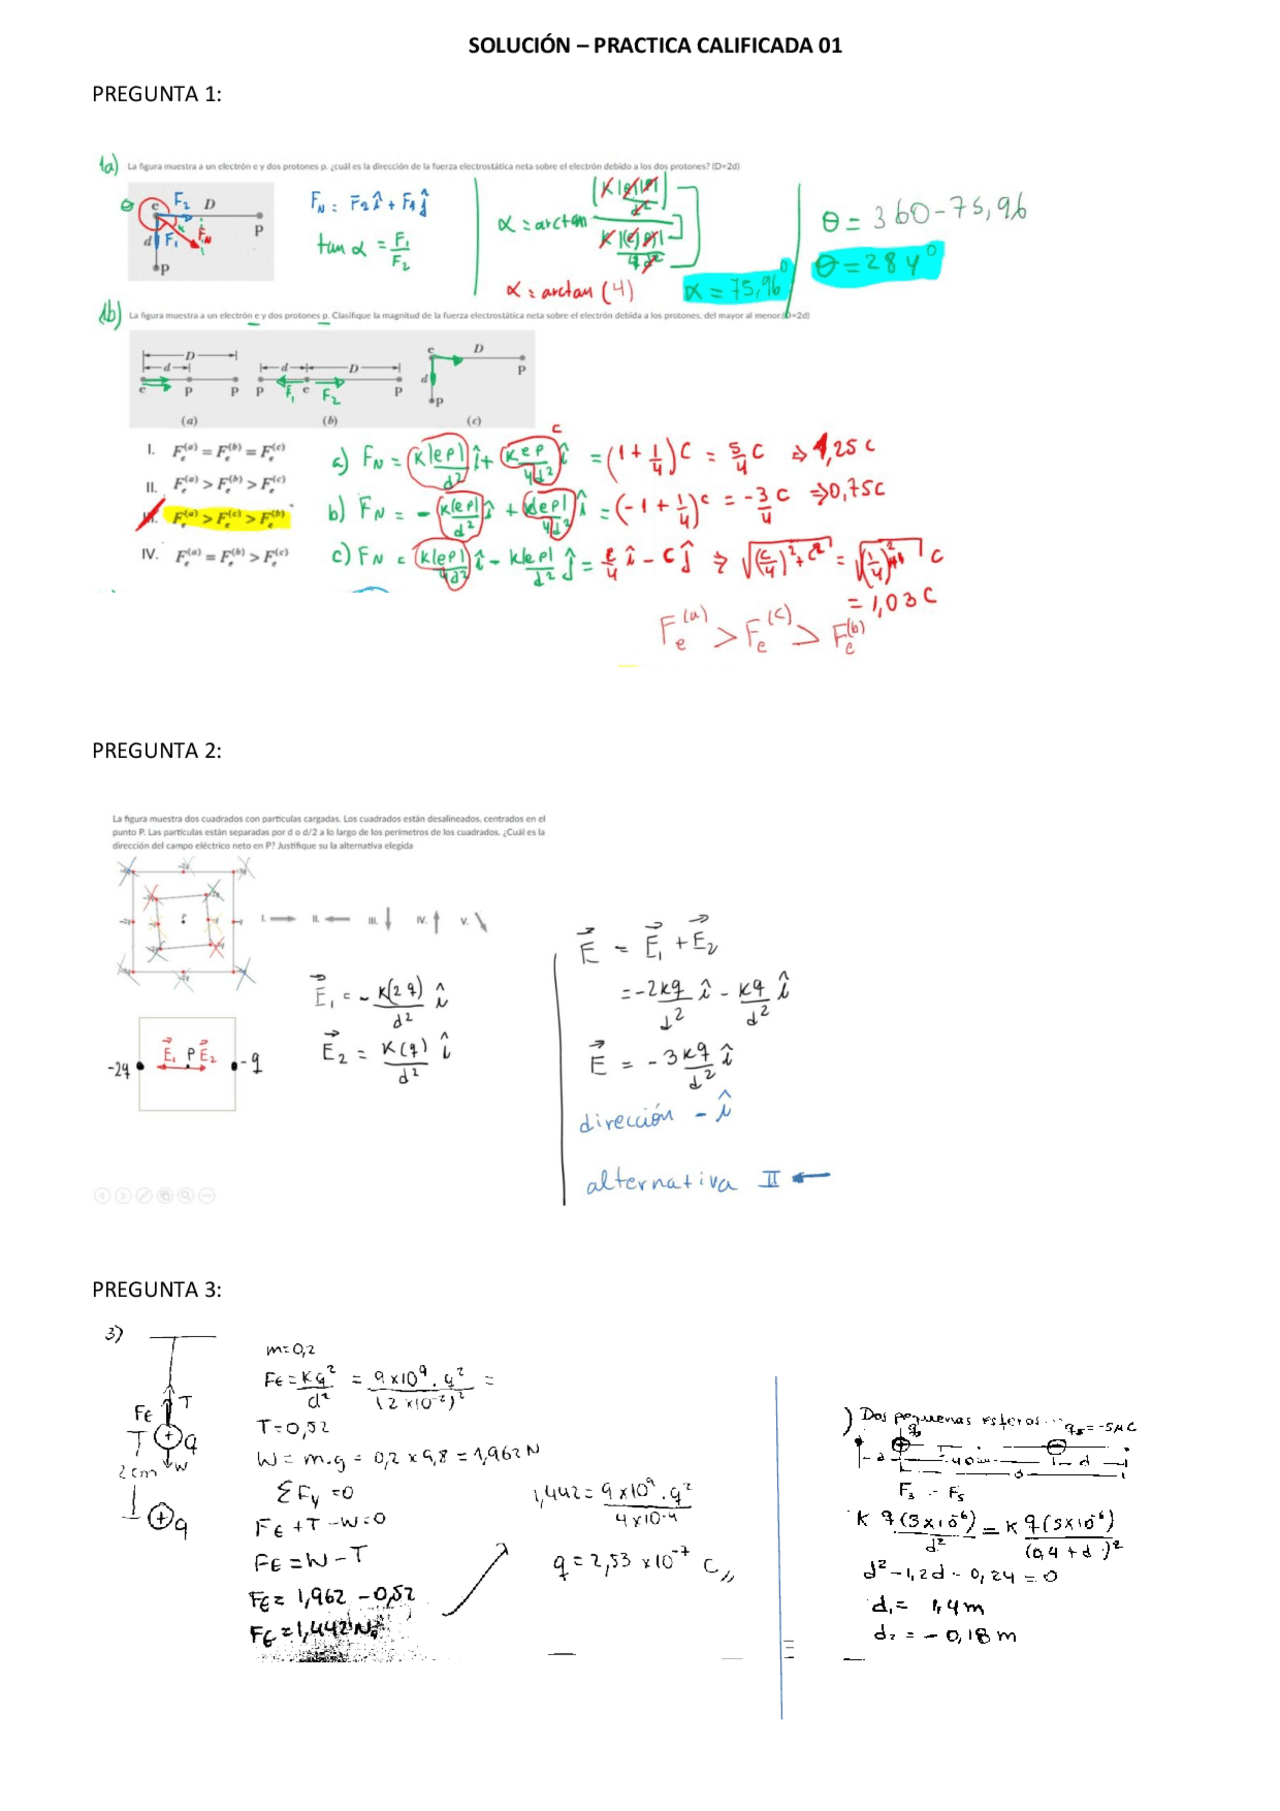 SOLUCIÓN – PRACTICA CALIFICADA 01
PREGUNTA 1:
1a) La figura muestra a un electrón e y dos protones p. ¿cuál es la dirección de la fuerza electrostática neta sobre el electrón debido a los dos protones? (D=2d)
θ e F₂ D P
d F₁ F_N
p
F_N = F₂ î + F₁ ĵ
tan α = F₁/F₂
α = arctan (K|e||P|/d²)/(K|(e)(p)|/4d²)
α = arctan (4)
α = 75,96°
θ = 360-75,96
θ = 284°
1b) La figura muestra a un electrón e y dos protones p. Clasifique la magnitud de la fuerza electrostática neta sobre el electrón debida a los protones, del mayor al menor.(D=2d)
D d e P P
d D P F₁ e F₂ P
e D P d p
(a) (b) (c)
I. Fe(a) = Fe(b) = Fe(c)
II. Fe(a) > Fe(b) > Fe(c)
III. Fe(a) > Fe(c) > Fe(b)
IV. Fe(a) = Fe(b) > Fe(c)
a) F_N = K|ep|/d² î + K ep/4d² î = (1 + 1/4) C = 5/4 C ⇒ 1,25 C
b) F_N = - K|ep|/d² î + K|ep|/4d² î = (-1 + 1/4) C = -3/4 C ⇒ 0,75C
c) F_N = K|ep|/4d² î - K|ep|/d² ĵ = C/4 î - C ĵ ⇒ √((C/4)² + C²) = √((1/4)² + 1) C
= 1,03 C
Fe(a) > Fe(c) > Fe(b)
PREGUNTA 2:
La figura muestra dos cuadrados con partículas cargadas. Los cuadrados están desalineados, centrados en el
punto P. Las partículas están separadas por d o d/2 a lo largo de los perímetros de los cuadrados. ¿Cuál es la
dirección del campo eléctrico neto en P? Justifique su la alternativa elegida
I. → II. ← III. ↓ IV. ↑ V. ↘
E₁ = - K(2q)/d² î
E₂ = K(q)/d² î
-2q E₁ P E₂ -q
E = E₁ + E₂
= -2kq/d² î - kq/d² î
E = - 3kq/d² î
dirección - î
alternativa II ←
PREGUNTA 3:
3)
FE T
q
2cm W
q
m=0,2
FE = Kq²/d² = 9x10⁹ . q²/(2x10⁻²)² =
T=0,52
W = m.g = 0,2 x 9,8 = 1,962 N
ΣFy =0
FE + T - W=0
FE = W - T
FE = 1,962 - 0,52
FE = 1,442 N
1,442 = 9x10⁹ . q²/4x10⁻⁴
q = 2,53 x10⁻⁷ C
) Dos pequeñas esferas...
q₅=-5μC
d
F₃ = F₅
K q(3x10⁻⁶)/d² = K q(5x10⁻⁶)/(0,4 + d)²
d² - 1,2d - 0,24 = 0
d₁ = 1,4 m
d₂ = - 0,18 m